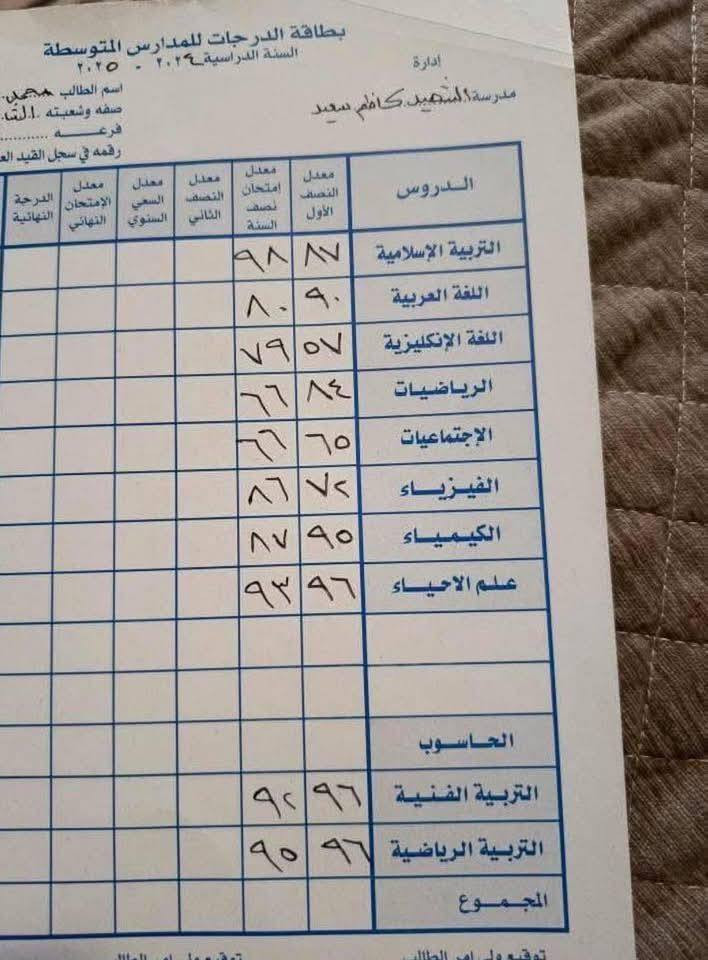 بطاقة الدرجات للمدارس المتوسطة
السنة الدراسية ٢٠٢٤ - ٢٠٢٥
إدارة
مدرسة الشهيد كاظم سعيد
اسم الطالب محمد
صفه وشعبته
فرعه
رقمه في سجل القيد
الدروس معدل النصف الأول معدل إمتحان نصف السنة معدل النصف الثاني معدل السعي السنوي معدل الإمتحان النهائي الدرجة النهائية
التربية الإسلامية ٨٧ ٩٨
اللغة العربية ٩٠ ٨٠
اللغة الإنكليزية ٥٧ ٧٩
الرياضيات ٨٤ ٦٦
الإجتماعيات ٦٥ ٦٦
الفيزياء ٧٢ ٨٦
الكيمياء ٩٥ ٨٧
علم الاحياء ٩٦ ٩٣
الحاسوب
التربية الفنية ٩٦ ٩٢
التربية الرياضية ٩٦ ٩٥
المجموع
توقيع ولي امر الطالب توقيع ولي امر الطالب